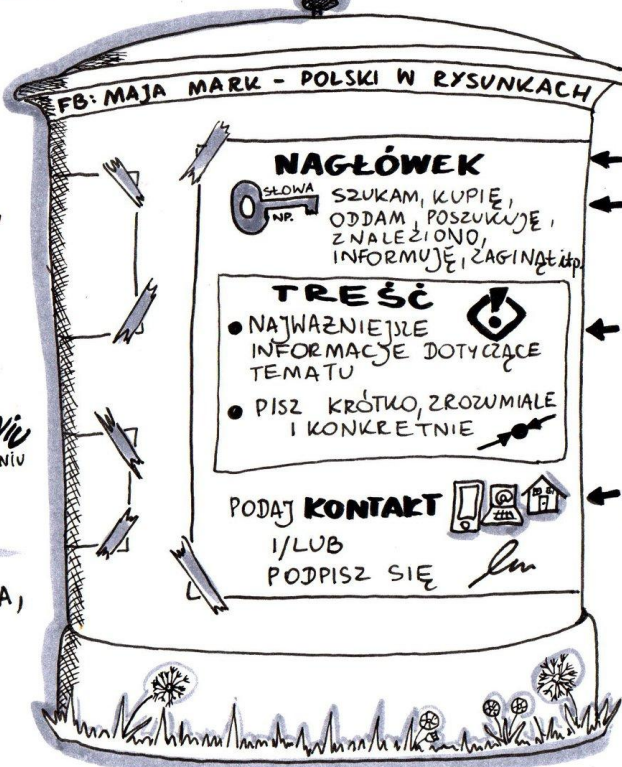 FB: MAJA MARK - POLSKI W RYSUNKACH
NAGŁÓWEK
SŁOWA
NP.
SZUKAM, KUPIĘ,
ODDAM, POSZUKUJĘ,
ZNALEZIONO,
INFORMUJĘ, ZAGINĄŁ itp.
TREŚĆ
• NAJWAŻNIEJSZE
INFORMACJE DOTYCZĄCE
TEMATU
• PISZ KRÓTKO, ZROZUMIALE
I KONKRETNIE
PODAJ KONTAKT
I/LUB
PODPISZ SIĘ